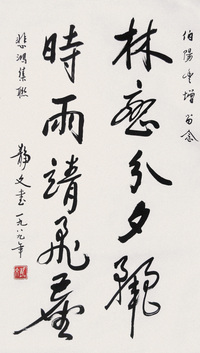 伯陽 留念
林壑分夕
時雨靖飛塵
悲鴻集聯
静文書 一九八九年